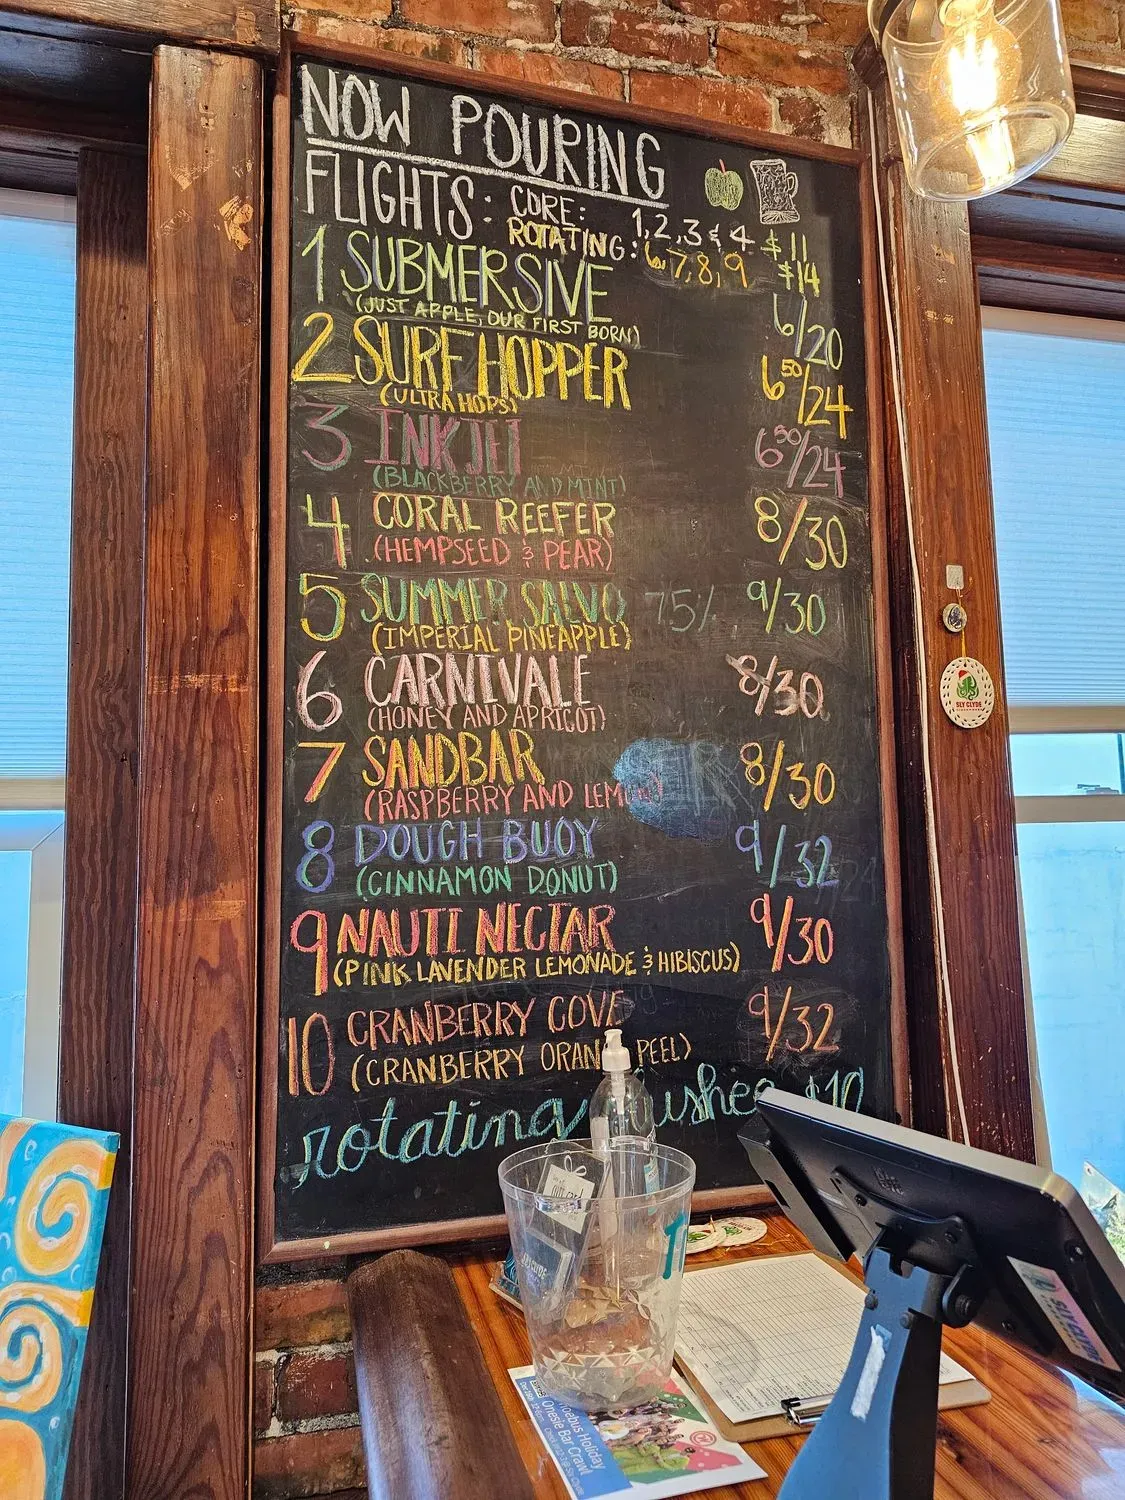 NOW POURING
FLIGHTS: CORE: 1, 2, 3 & 4 $11
ROTATING: 6, 7, 8, 9 $14
1 SUBMERSIVE 6/20
(JUST APPLE, OUR FIRST BORN)
2 SURF HOPPER 6⁵⁰/24
(ULTRA HOPS)
3 INK JET 6⁵⁰/24
(BLACKBERRY AND MINT)
4 CORAL REEFER 8/30
(HEMPSEED & PEAR)
5 SUMMER SALVO 7.5% 9/30
(IMPERIAL PINEAPPLE)
6 CARNIVALE 8/30
(HONEY AND APRICOT)
7 SANDBAR 8/30
(RASPBERRY AND LEMON)
8 DOUGH BUOY 9/32
(CINNAMON DONUT)
9 NAUTI NECTAR 9/30
(PINK LAVENDER LEMONADE & HIBISCUS)
10 CRANBERRY COVE 9/32
(CRANBERRY ORANGE PEEL)
rotating slushee $10
SLY CLYDE
SLY CLYDE
Holiday
Onesie Bar Crawl